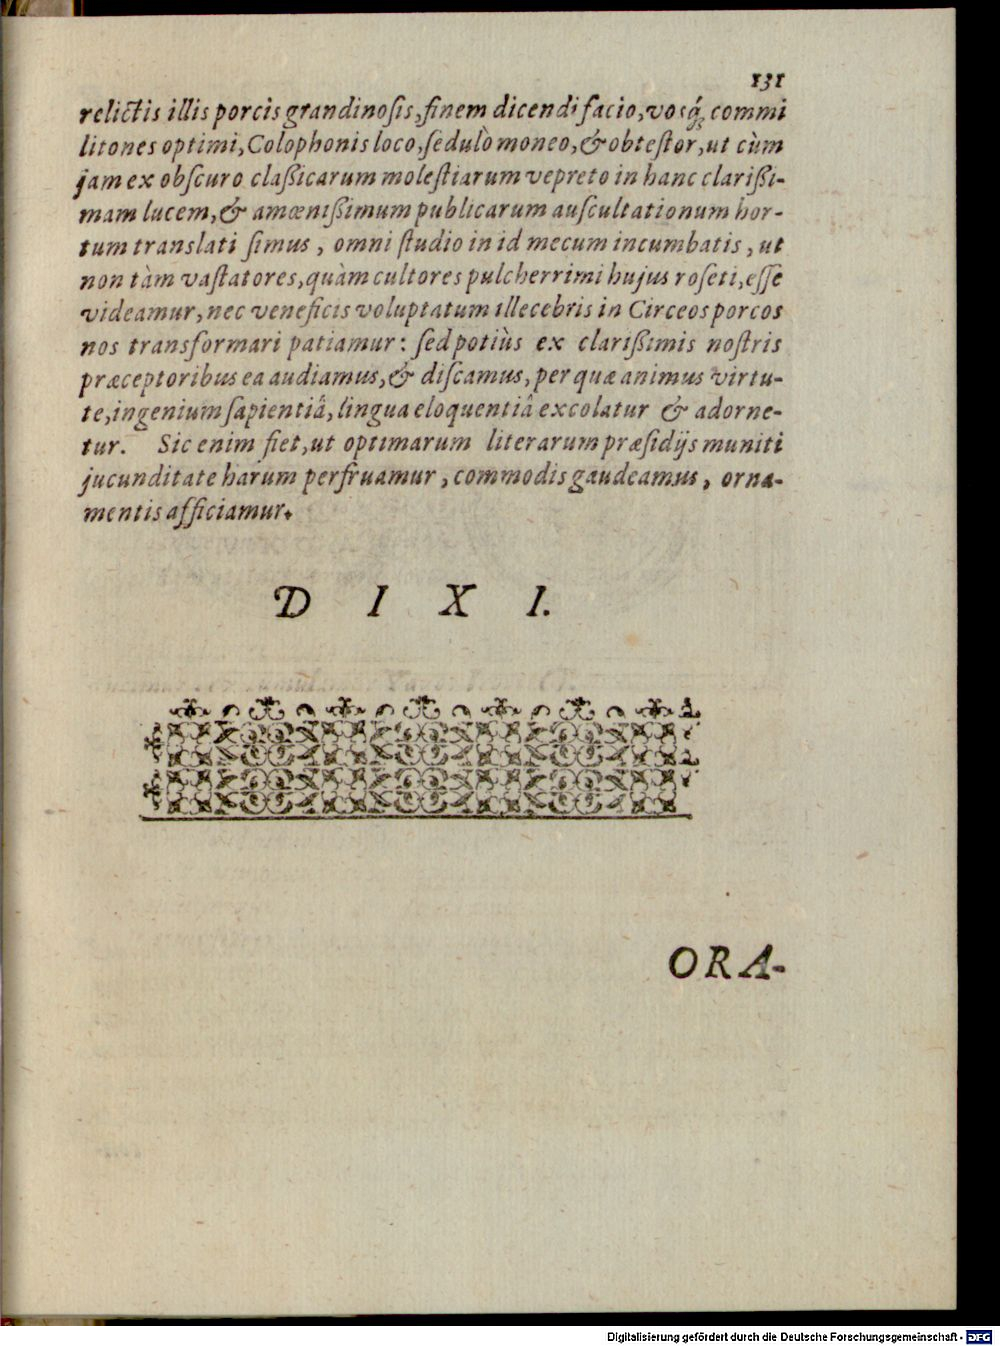 131
relictis illis porcis grandinosis, finem dicendi facio, vosq́; commi
litones optimi, Colophonis loco, sedulò moneo, & obtestor, ut cùm
jam ex obscuro claßicarum molestiarum vepreto in hanc clarißi-
mam lucem, & amœnißimum publicarum auscultationum hor-
tum translati simus, omni studio in id mecum incumbatis, ut
non tàm vastatores, quàm cultores pulcherrimi hujus roseti, esse
videamur, nec veneficis voluptatum illecebris in Circeos porcos
nos transformari patiamur: sed potiùs ex clarißimis nostris
præceptoribus ea audiamus, & discamus, per quæ animus virtu-
te, ingenium sapientiâ, lingua eloquentiâ excolatur & adorne-
tur. Sic enim fiet, ut optimarum literarum præsidijs muniti
jucunditate harum perfruamur, commodis gaudeamus, orna-
mentis afficiamur.
D I X I.
ORA-
Digitalisierung gefördert durch die Deutsche Forschungsgemeinschaft - DFG